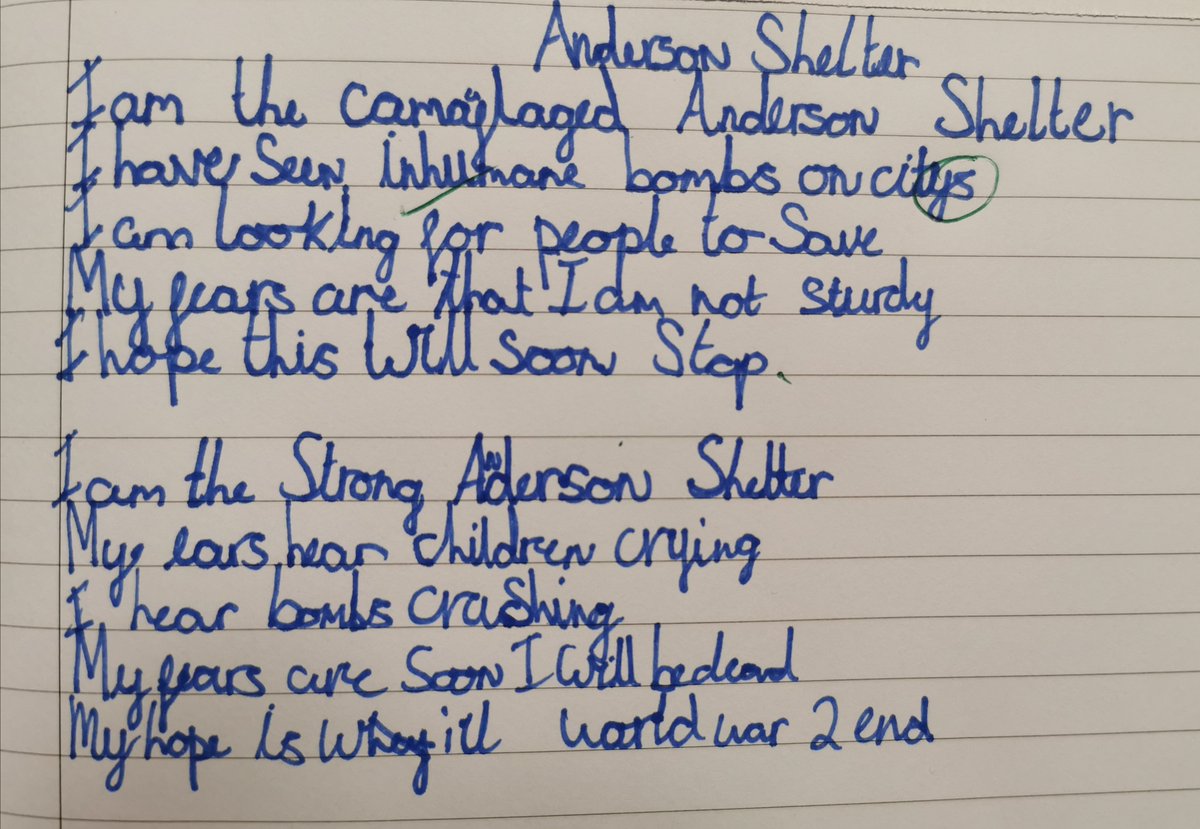 Anderson Shelter
I am the camaflaged Anderson Shelter
I have Seen inhumane bombs on citys
I am looking for people to Save
My fears are that I am not sturdy
I hope this Will soon Stop.
I am the Strong Anderson Shelter
My ears hear children crying
I hear bombs crashing
My fears are Soon I Will be dead
My hope is will world war 2 end